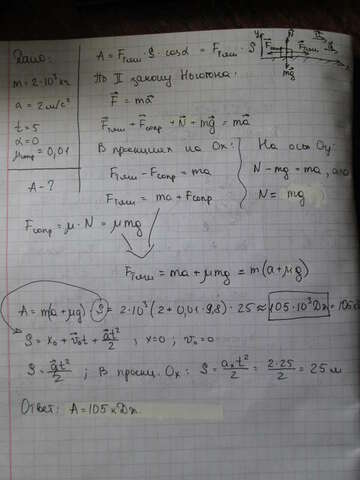 Дано:
m = 2·10³ кг
a = 2 м/с²
t = 5
α = 0
μ = 0,01
A - ?
A = Fтяги · S · cosα = Fтяги · S
По II закону Ньютона:
F⃗ = ma⃗
F⃗тяги + F⃗сопр + N⃗ + mg⃗ = ma⃗
В проекциях на Ox:
Fтяги - Fсопр = ma
Fтяги = ma + Fсопр
На ось Oy:
N - mg = ma, a=0
N = mg
Fсопр = μ · N = μmg
Fтяги = ma + μmg = m(a + μg)
A = m(a + μg) · S = 2·10³ (2 + 0,01 · 9,8) · 25 ≈ 105·10³ Дж = 105 к
S = x₀ + v⃗₀t + a⃗t²/2 , x=0 ; v₀=0
S = a⃗t²/2 ; В проекц. Ox: S = aₓt²/2 = 2·25/2 = 25 м
Ответ: A = 105 кДж.
y
N
Fсопр
Fтяги
mg